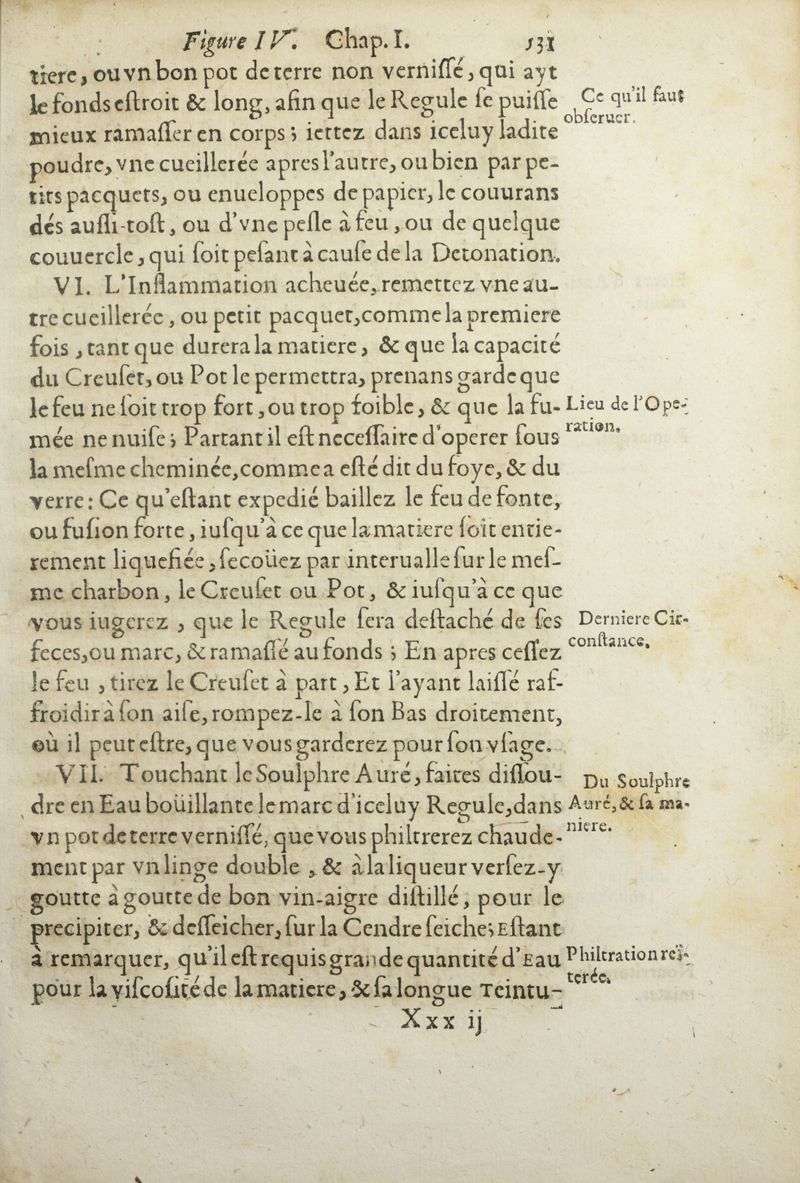 Figure IV. Chap. I. 531
tiere, ou vn bon pot de terre non vernissé, qui ayt
le fonds estroit & long, afin que le Regule se puisse
mieux ramasser en corps; iettez dans iceluy ladite
Ce qu'il faut
obseruer.
poudre, vne cueillerée apres l'autre, ou bien par pe-
tits pacquets, ou enueloppes de papier, le couurans
dés aussi-tost, ou d'vne pesle à feu, ou de quelque
couuercle, qui soit pesant à cause de la Detonation.
VI. L'Inflammation acheuée, remettez vne au-
tre cueillerée, ou petit pacquet, comme la premiere
fois, tant que durera la matiere, & que la capacité
du Creuset, ou Pot le permettra, prenans garde que
le feu ne soit trop fort, ou trop foible, & que la fu-
mée ne nuise; Partant il est necessaire d'operer sous
Lieu de l'Ope-
ration.
la mesme cheminée, comme a esté dit du foye, & du
verre: Ce qu'estant expedié baillez le feu de fonte,
ou fusion forte, iusqu'à ce que la matiere soit entie-
rement liquefiée, secoüez par interualle sur le mes-
me charbon, le Creuset ou Pot, & iusqu'à ce que
vous iugerez, que le Regule sera destaché de ses
feces, ou marc, & ramassé au fonds; En apres cessez
Derniere Cir-
constance.
le feu, tirez le Creuset à part, Et l'ayant laissé raf-
froidir à son aise, rompez-le à son Bas droitement,
où il peut estre, que vous garderez pour son vsage.
VII. Touchant le Soulphre Auré, faites dissou-
dre en Eau boüillante le marc d'iceluy Regule, dans
vn pot de terre vernissé, que vous philtrerez chaude-
Du Soulphre
Auré, & sa ma-
niere.
ment par vn linge double, & à la liqueur versez-y
goutte à goutte de bon vin-aigre distillé, pour le
precipiter, & desseicher, sur la Cendre seiche; Estant
à remarquer, qu'il est requis grande quantité d'Eau
pour la viscosité de la matiere, & sa longue Teintu-
Philtration rei-
terée.
Xxx ij